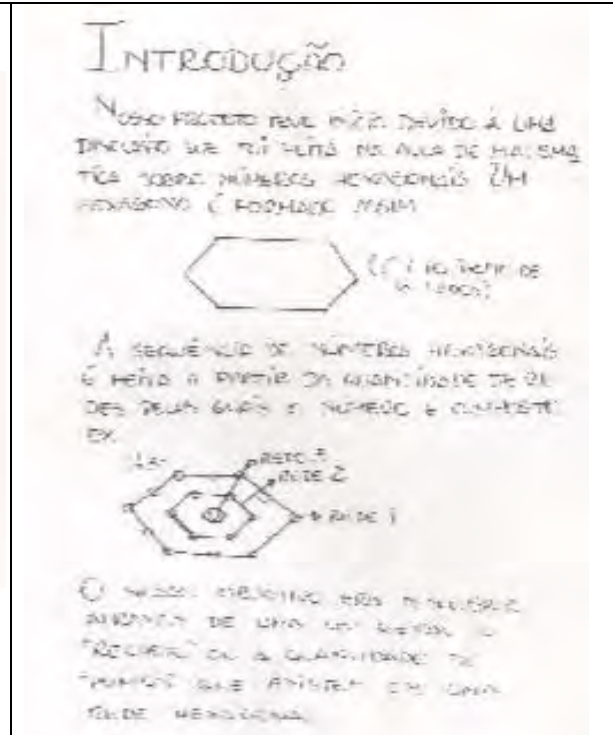 INTRODUÇÃO
NOSSO PROJETO TEVE INÍCIO DEVIDO À UMA
DISCUSSÃO QUE FOI FEITA NA AULA DE MATEMÁ
TICA SOBRE NÚMEROS HEXAGONAIS UM
HEXÁGONO É FORMADO ASSIM
DE
A SEQUÊNCIA DE NÚMEROS HEXAGONAIS
É FEITA A PARTIR DA QUANTIDADE DE RE
DES PELAS QUAIS O NÚMERO É COMPOSTO
EX
REDE 3
REDE 2
REDE 1
O NOSSO OBJETIVO ERA
ATRAVÉS DE UMA
OU A QUANTIDADE DE
QUE EXISTEM EM UMA
REDE HEXAGONAL